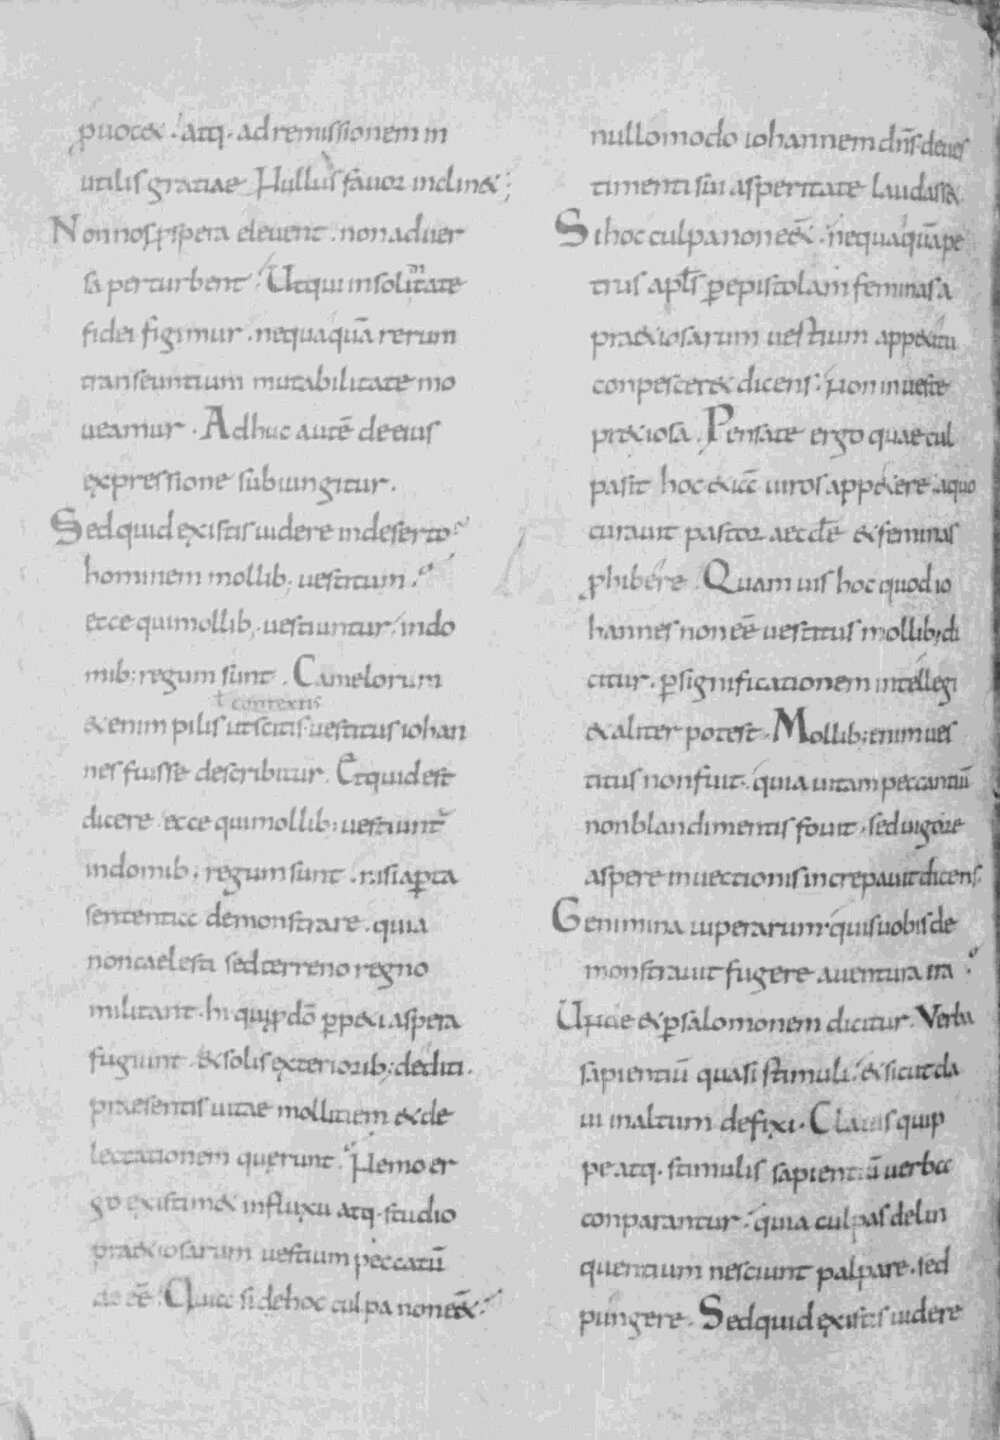 puocet · atq· ad remissionem in
utilis gratiae Nullus favor inclinet ;
Non nos prospera elevent · non adver
sa perturbent · Ut qui in soliditate
fidei figimur · nequaquā rerum
transeuntium mutabilitate mo
veamur · Adhuc autē de eius
expressione subiungitur ·
Sed quid existis videre in deserto
hominem mollib; vestitum ·
ecce qui mollib; vestiuntur · in do
mib; regum sunt · Camelorum
ł contextis
et enim pilis ut scitis vestitus iohan
nes fuisse describitur · Et quid est
dicere ecce qui mollib; vestiunt̄
in domib; regum sunt · nisi aꝑta
sententia demonstrare · quia
non caelesti sed terreno regno
militant · hi qui ꝓ dō ꝑpeti aspera
fugiunt · et solis exteriorib; dediti ·
praesentis vitae mollitiem et de
lectationem querunt · Nemo er
go existimet in fluxu atq· studio
praetiosarum vestium peccatū
de eē · Quia si de hoc culpa non eēt ·
nullo modo iohannem dn̄s de ves
timenti sui asperitate laudasset
Si hoc culpa non eēt · nequaquā pe
trus apl̄s ꝑ epistolam feminas a
praetiosarum vestium appetitu
conpesceret dicens · Non in veste
pretiosa · Pensate ergo quae cul
pa sit hoc etiā viros appetere · a quo
curavit pastor aeccl̄e et feminas
ꝓhibere · Quamvis hoc quod io
hannes non eē vestitus mollib; di
citur · ꝑ significationem intellegi
et aliter potest · Mollib; enim ves
titus non fuit · quia vitam peccantiū
non blandimentis fovit · sed vigore
aspere invectionis increpavit dicens ·
Genimina viperarum · quis vobis de
monstravit fugere a ventura ira ·
Unde et ꝑ salomonem dicitur · Verba
sapientiū quasi stimuli · et sicut cla
vi in altum defixi · Clavis quip
pe atq· stimulis sapientiū verba
conparantur · quia culpas delin
quentium nesciunt palpare · sed
pungere · Sed quid existis videre